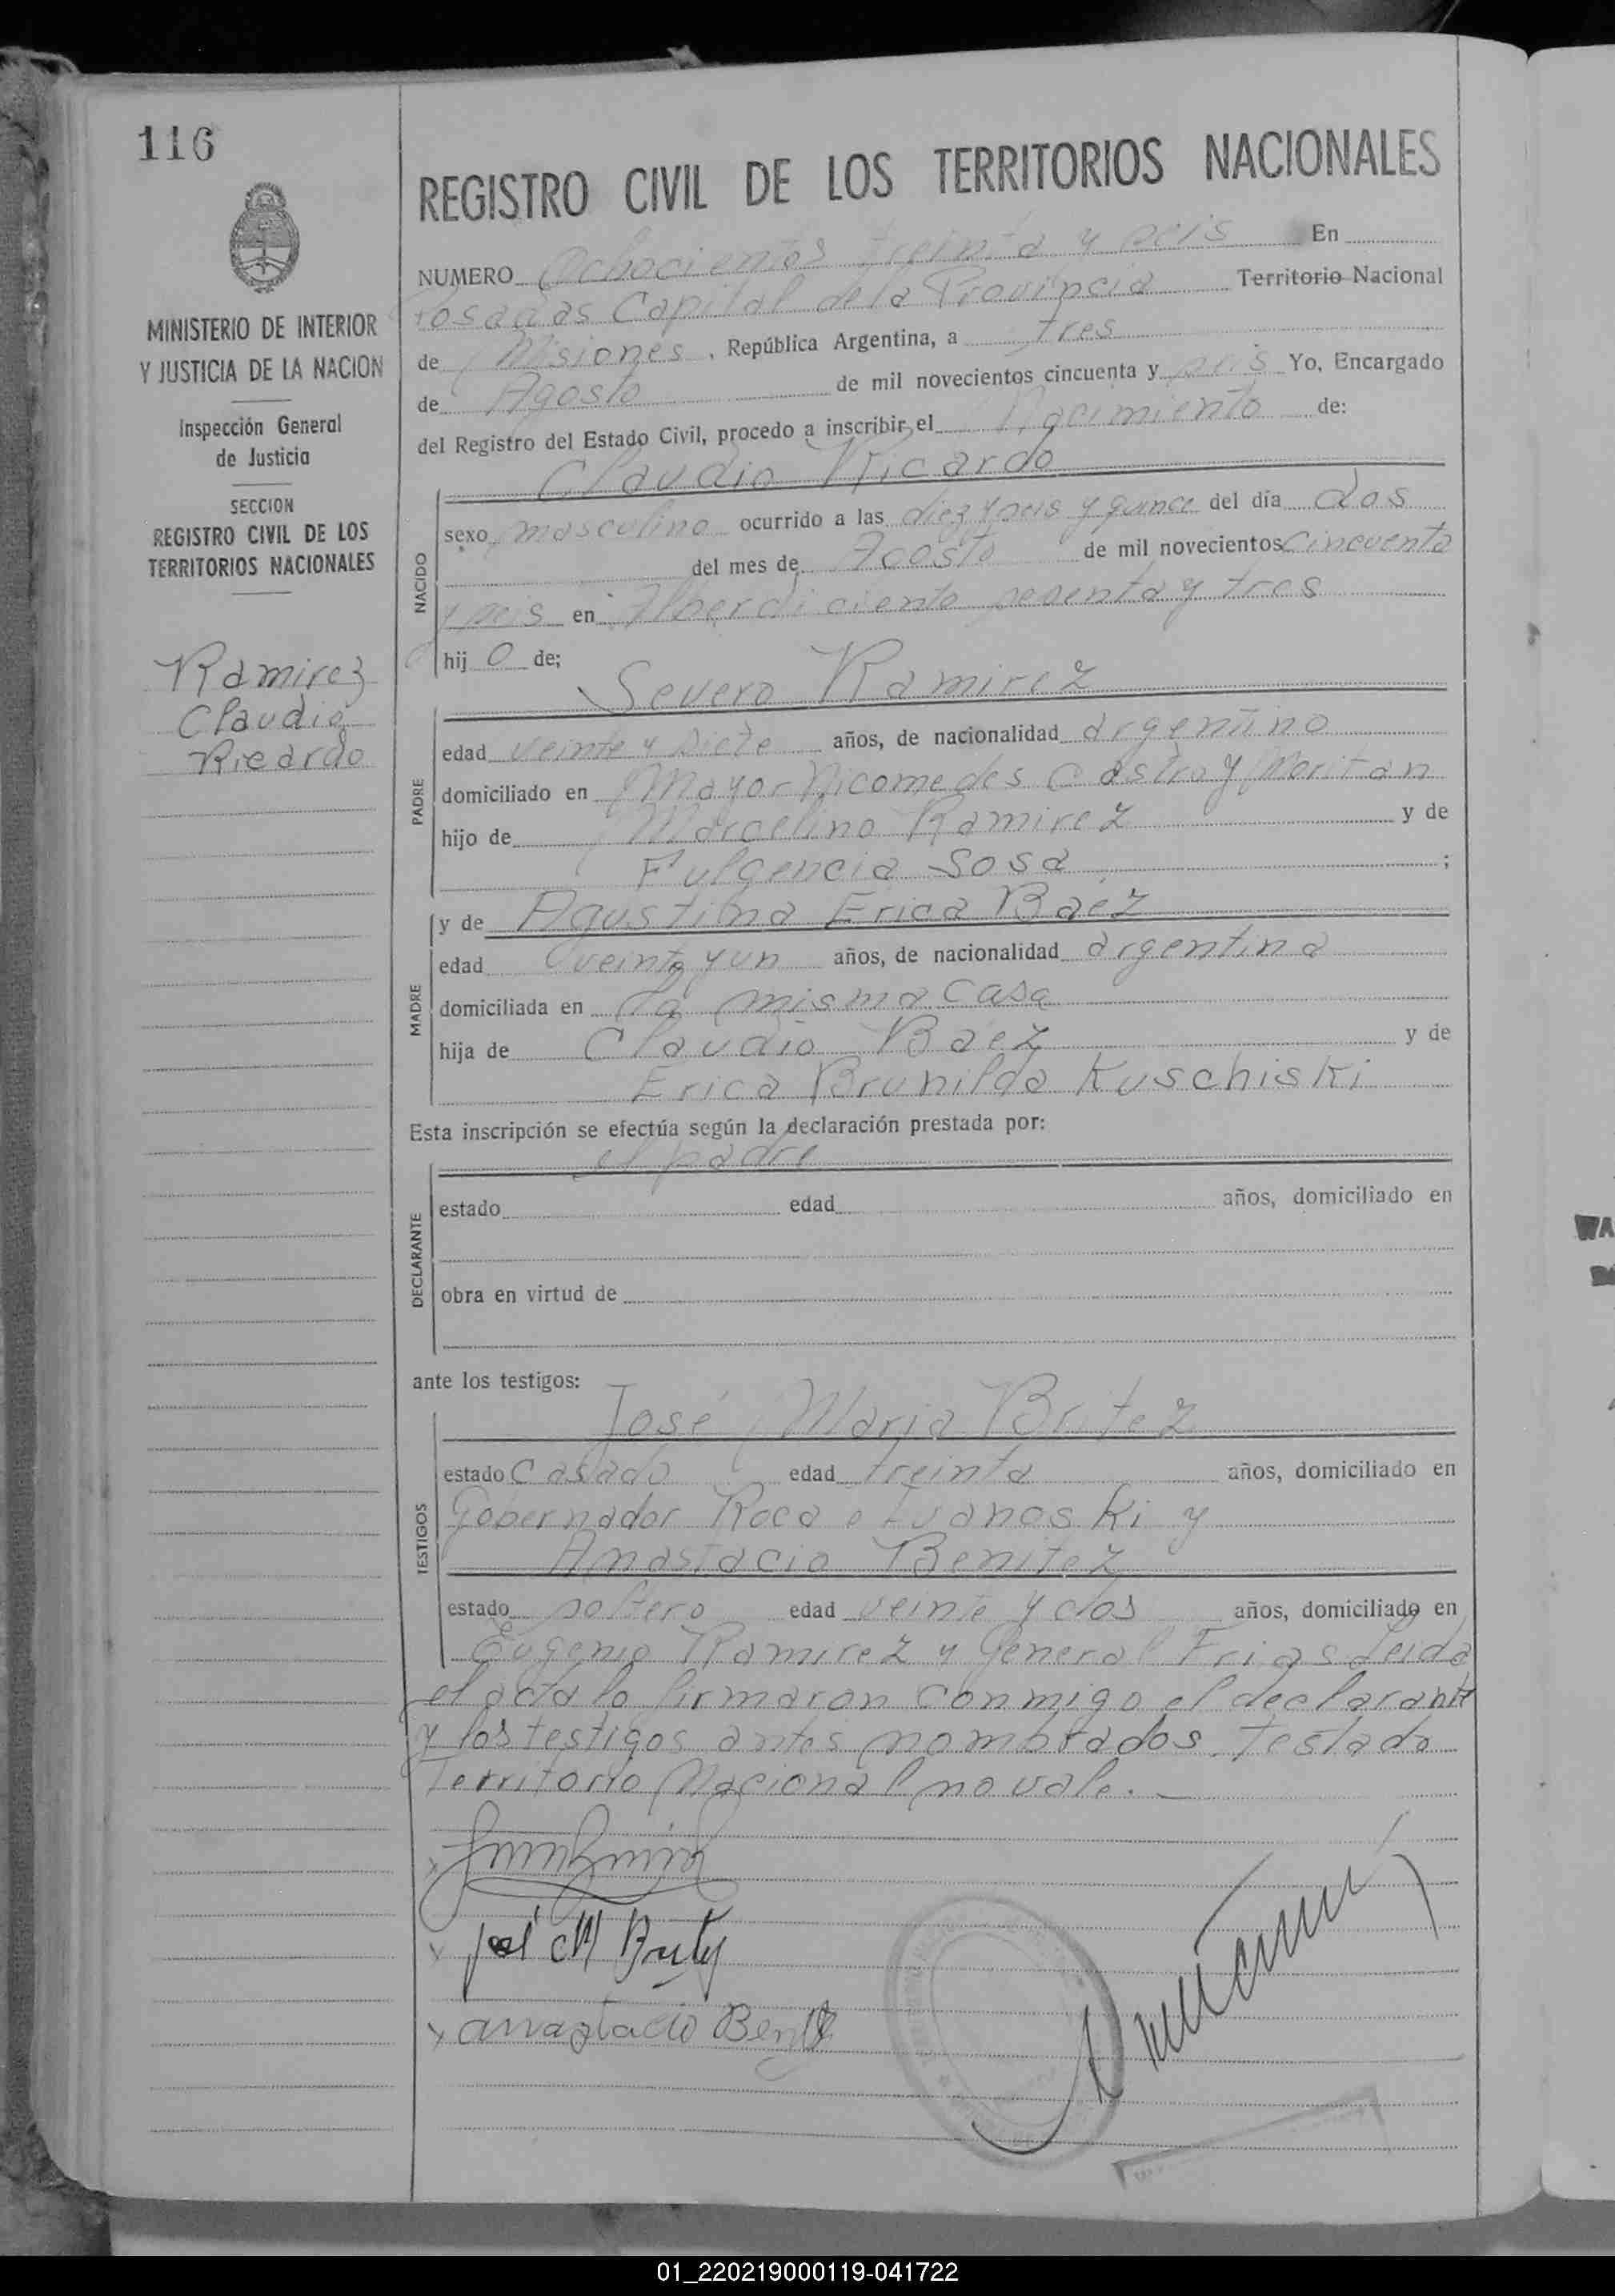 116
MINISTERIO DE INTERIOR
Y JUSTICIA DE LA NACION
Inspección General
de Justicia
SECCION
REGISTRO CIVIL DE LOS
TERRITORIOS NACIONALES
Ramirez
Claudio
Ricardo
REGISTRO CIVIL DE LOS TERRITORIOS NACIONALES
NUMERO Ochocientos treinta y seis En
Posadas Capital de la Provincia Territorio Nacional
de Misiones, República Argentina, a tres
de Agosto de mil novecientos cincuenta y seis Yo, Encargado
del Registro del Estado Civil, procedo a inscribir el Nacimiento de:
Claudio Ricardo
NACIDO
sexo masculino ocurrido a las diez y seis y quince del día dos
del mes de Agosto de mil novecientos cincuenta
y seis en Alberdi ciento sesenta y tres
hijo de;
Severo Ramirez
PADRE
edad veinte y siete años, de nacionalidad argentino
domiciliado en Mayor Nicomedes Castro y Moritan
hijo de Marcelino Ramirez y de
Fulgencia Sosa ;
MADRE
y de Agustina Erica Baéz
edad veinte y un años, de nacionalidad argentina
domiciliada en la misma casa
hija de Claudio Baez y de
Erica Brunilda Kuschiski
Esta inscripción se efectúa según la declaración prestada por:
el padre
DECLARANTE
estado edad años, domiciliado en
obra en virtud de
ante los testigos:
José Maria Britez
TESTIGOS
estado casado edad treinta años, domiciliado en
Gobernador Roca e Ivanoski y
Anastacio Benitez
estado soltero edad veinte y dos años, domiciliado en
Eugenio Ramirez y General Frias Leida
el acta la firmaron conmigo el declarante
y los testigos antes nombrados. Testado
Territorio Nacional no vale.
José M Britez
Anastacio Benitez
WA
01_220219000119-041722